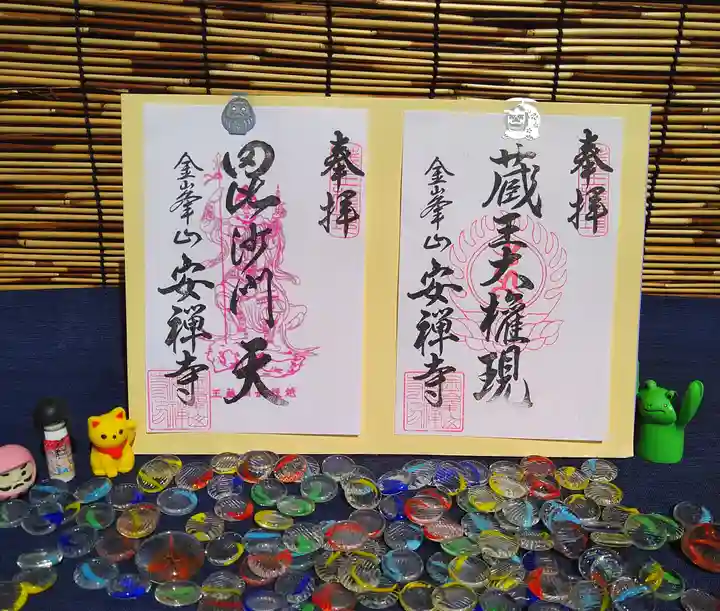 奉拝
蔵王大権現
金峯山 安禅寺
奉拝
毘沙門天
金峯山 安禅寺